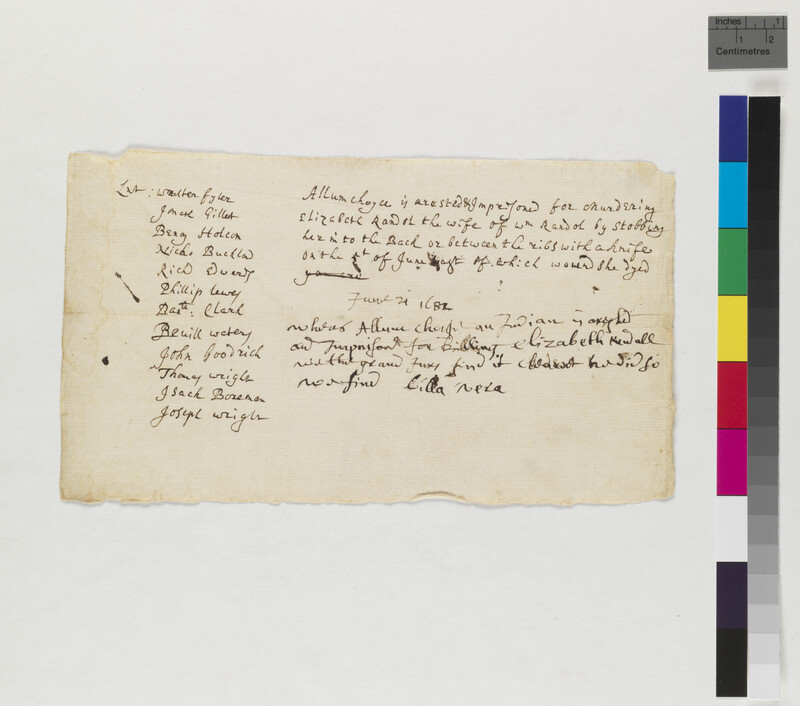 Inches 1
1 2
Centimetres
Lnt: walter fyler
Jonath Gillet
Benj Holcom
Nicho Buckland
Rich Edwards
Phillip Lewes
Danll: Clark
Bevill waters
John Goodrich
Thomas wright
Isack Boreman
Joseph wright
Allumchoyce is arested & Impresoned for Murdering
Elizabeth Randol the wife of wm Randol by Stobbing
her in to the Back or between the ribs with a knife
on the of June last of which wound she dyed
June 21 1682
wheras Allum choyse an Indian is
and Imprisond for killing Elizabeth Randall
wee the grand Jury find it he did so
wee find billa vera